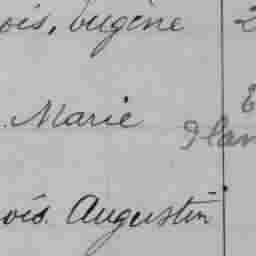 ois, Eugène 2
Marie
ois Augustin